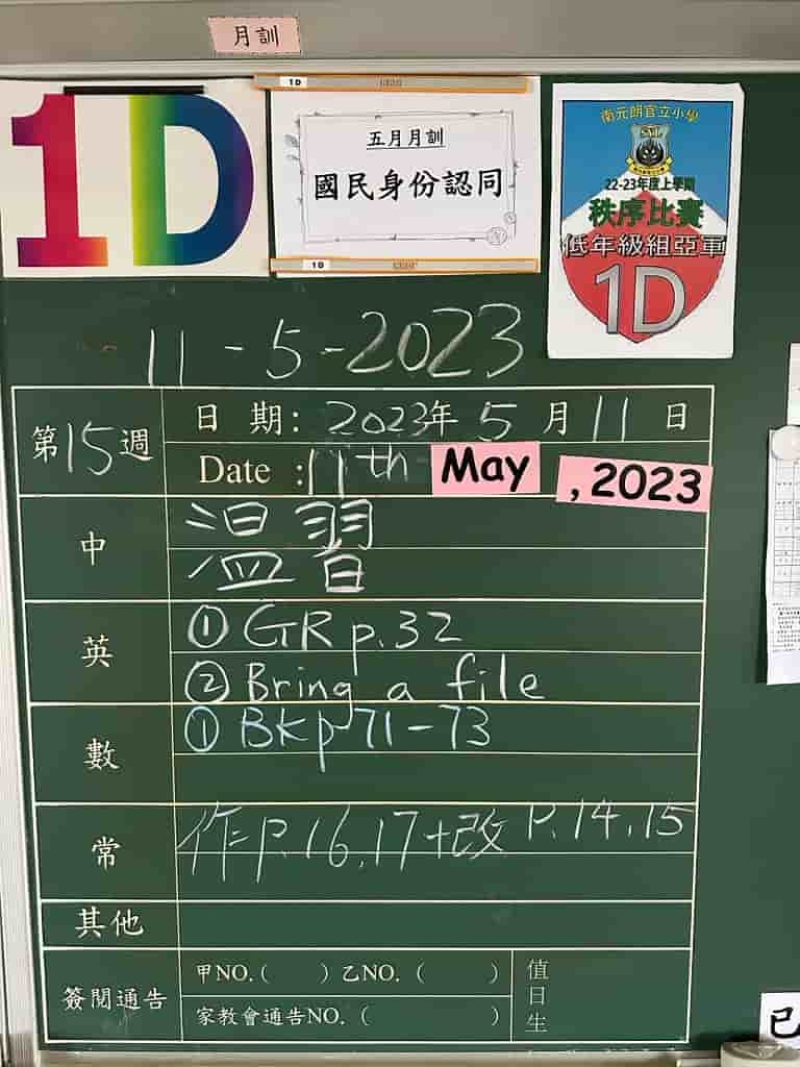 月訓
1D
1D
五月月訓
國民身份認同
1D
南元朗官立小學
22-23年度上學期
秩序比賽
低年級組亞軍
1D
11-5-2023
第15週
日 期: 2023年 5 月 11 日
Date : 11th May , 2023
中
溫習
英
① GR p.32
② Bring a file
數
① BK p71-73
常
作P.16,17+改 P.14,15
其他
簽閱通告
甲NO.( ) 乙NO. ( )
家教會通告NO. ( )
值日生
已